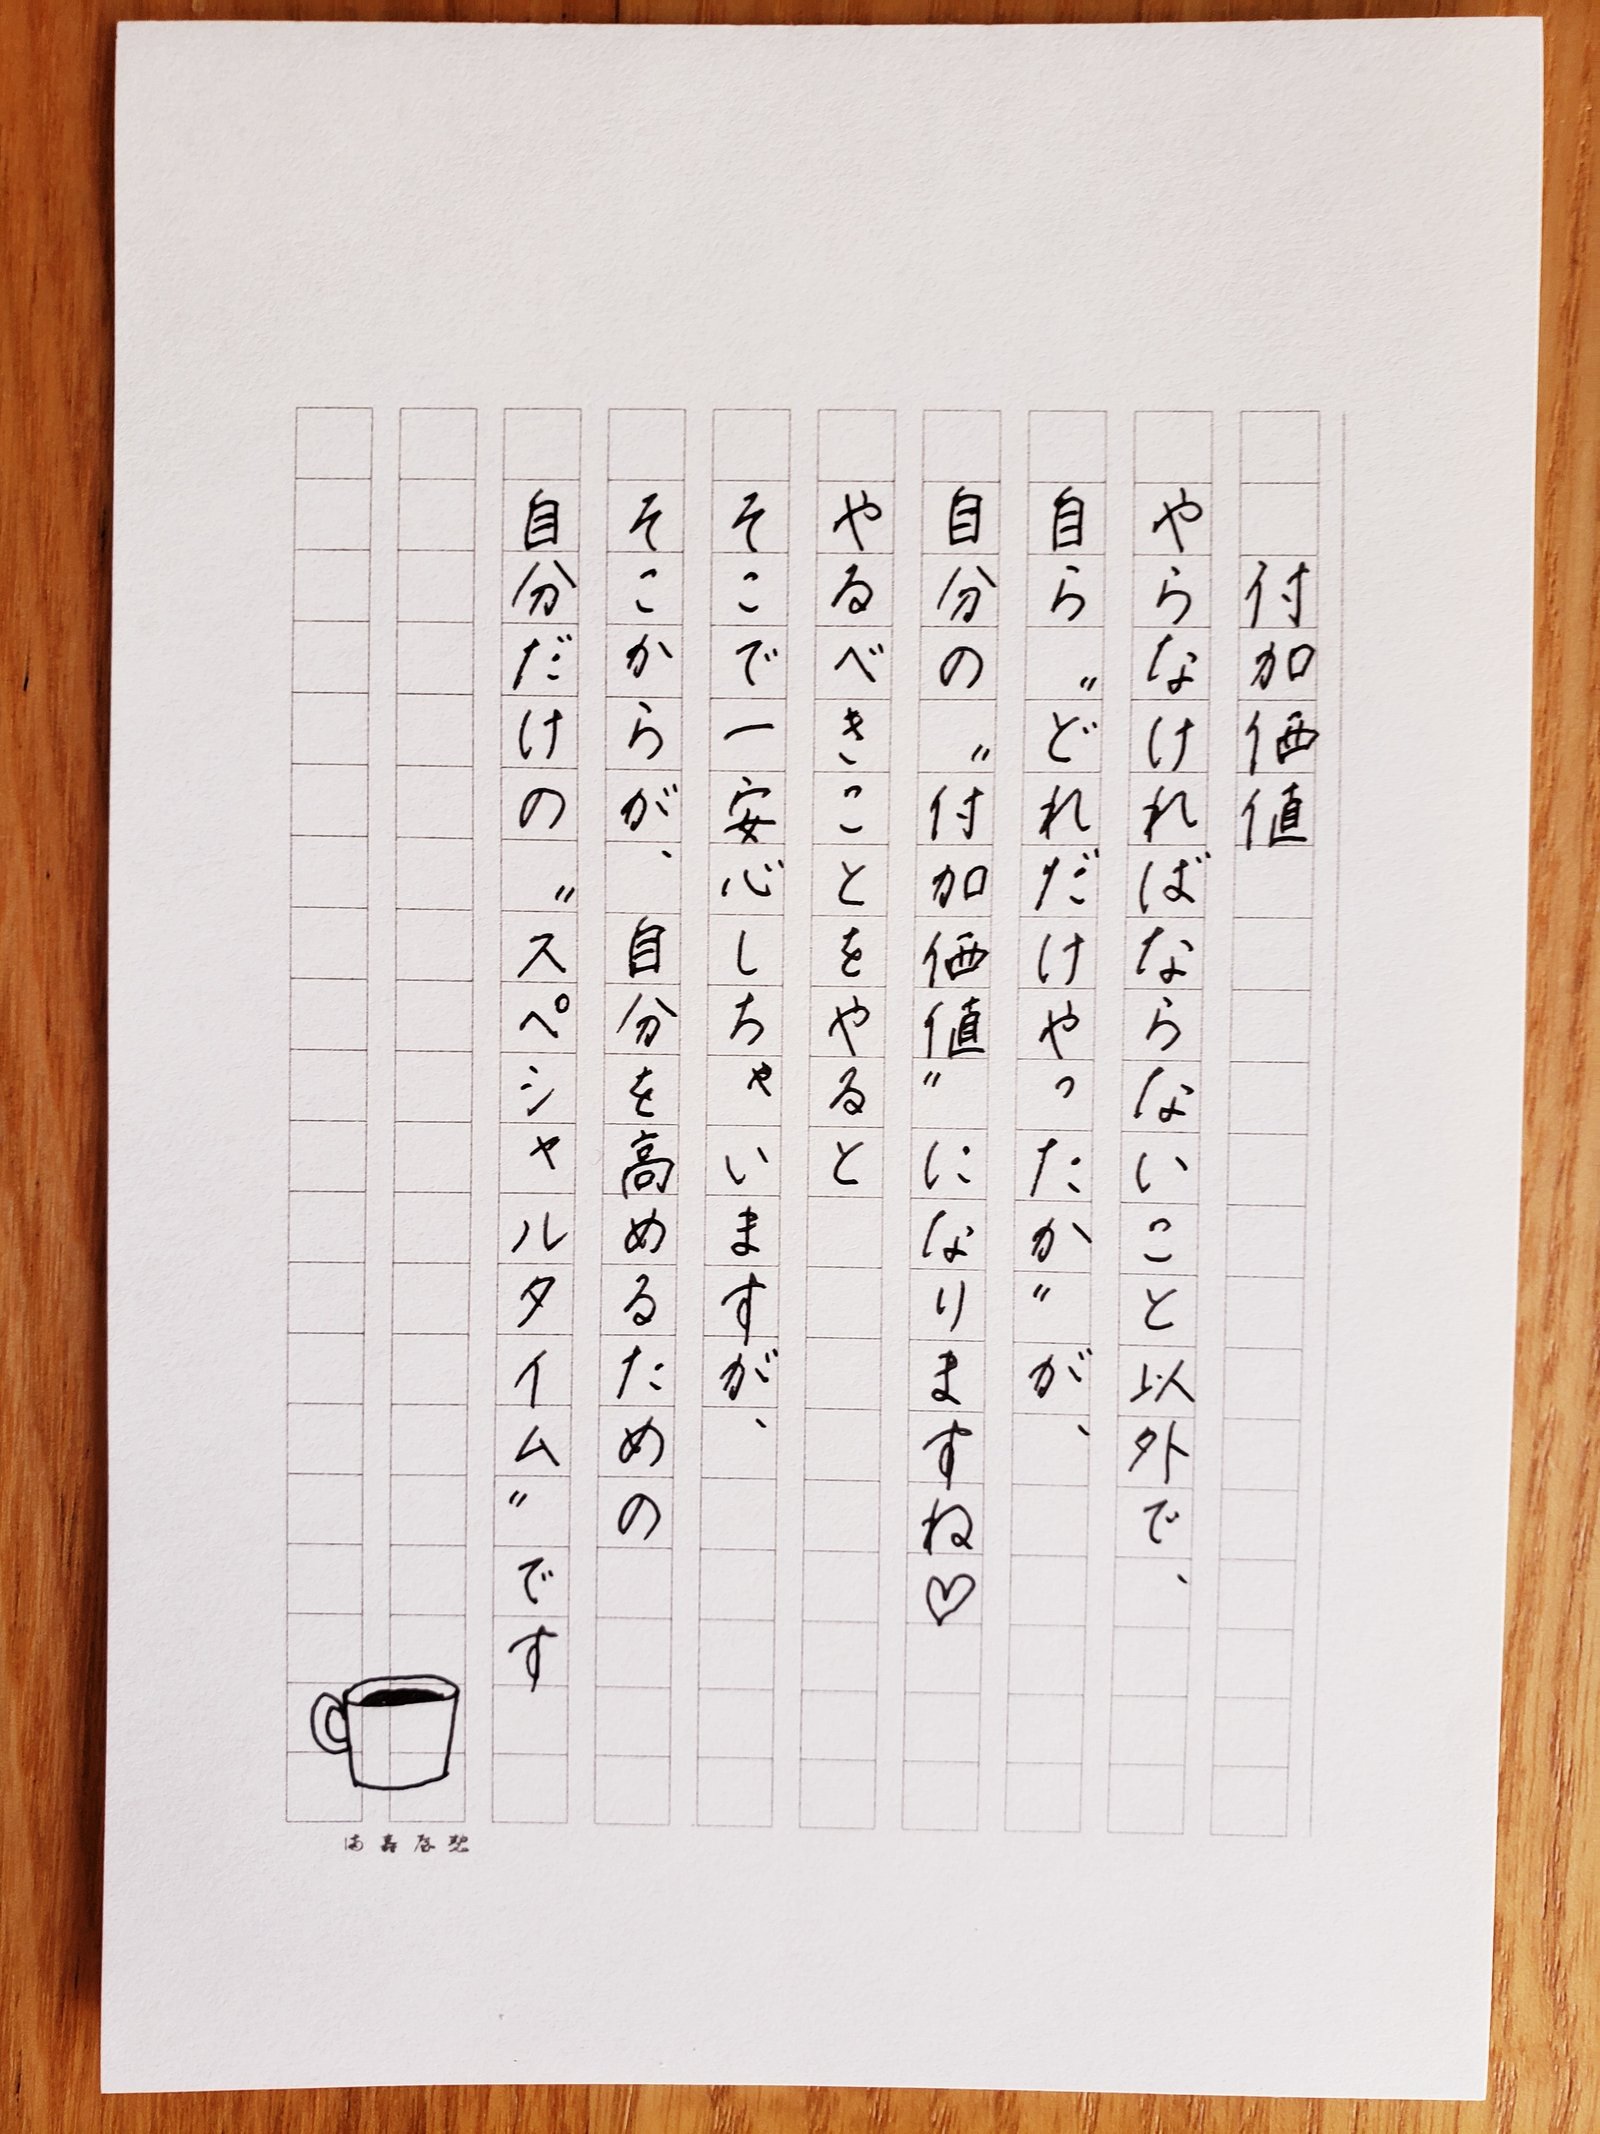 付加価値
やらなければならないこと以外で、
自ら〝どれだけやったか〞が、
自分の〝付加価値〞になりますね♡
やるべきことをやると
そこで一安心しちゃいますが、
そこからが、自分を高めるための
自分だけの〝スペシャルタイム〞です